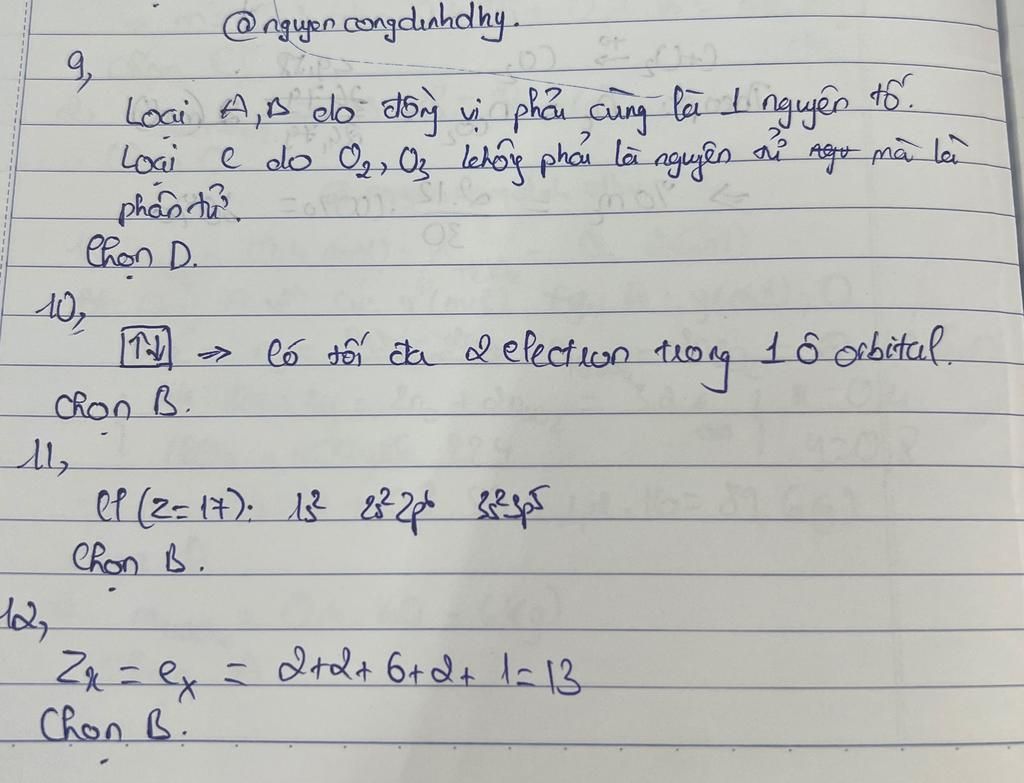 @nguyencongdinhdhy.
9,
Loại A, B do đồng vị phải cùng là 1 nguyên tố.
Loại C do O₂, O₃ không phải là nguyên tử mà là
phân tử.
Chọn D.
10,
↑↓ ⇒ Có tối đa 2 electron trong 1 ô orbital.
Chọn B.
11,
Cl (Z=17): 1s² 2s²2p⁶ 3s²3p⁵
Chọn B.
12,
Zx = ex = 2+2+6+2+1=13
Chọn B.